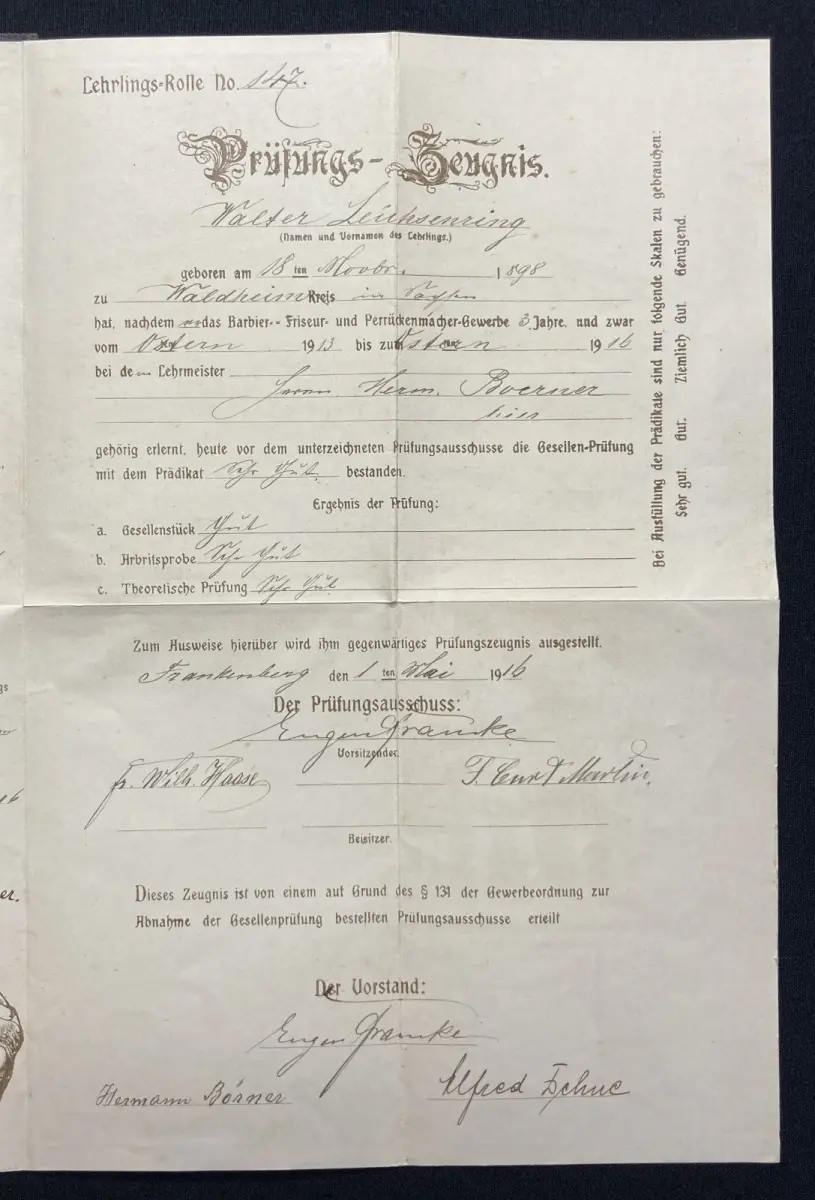 Lehrlings-Rolle No. 147.
Prüfungs-Zeugnis.
Walter Leichsenring
(Namen und Vornamen des Lehrlings.)
geboren am 18ten Novbr. 1898
zu Waldheim Kreis in Sachsen
hat, nachdem er das Barbier-- Friseur- und Perrückenmacher-Gewerbe 3 Jahre, und zwar
vom Ostern 1913 bis zum Ostern 1916
bei dem Lehrmeister
Herrn Herm. Boerner
hier
gehörig erlernt, heute vor dem unterzeichneten Prüfungsausschusse die Gesellen-Prüfung
mit dem Prädikat Sehr Gut. bestanden.
Ergebnis der Prüfung:
a. Gesellenstück Gut
b. Arbritsprobe Sehr Gut
c. Theoretische Prüfung Sehr Gut
Zum Ausweise hierüber wird ihm gegenwärtiges Prüfungszeugnis ausgestellt.
Frankenberg den 1ten Mai 1916
Der Prüfungsausschuss:
Eugen Francke
Vorsitzender.
Fr. Wilh. Haase F. Curt Martin.
Beisitzer.
Dieses Zeugnis ist von einem auf Grund des § 131 der Gewerbeordnung zur
Abnahme der Gesellenprüfung bestellten Prüfungsausschusse erteilt
Der Vorstand:
Eugen Francke
Hermann Börner Alfred
Bei Ausfüllung der Prädikate sind nur folgende Skalen zu gebrauchen:
Sehr gut. Gut. Ziemlich Gut. Genügend.